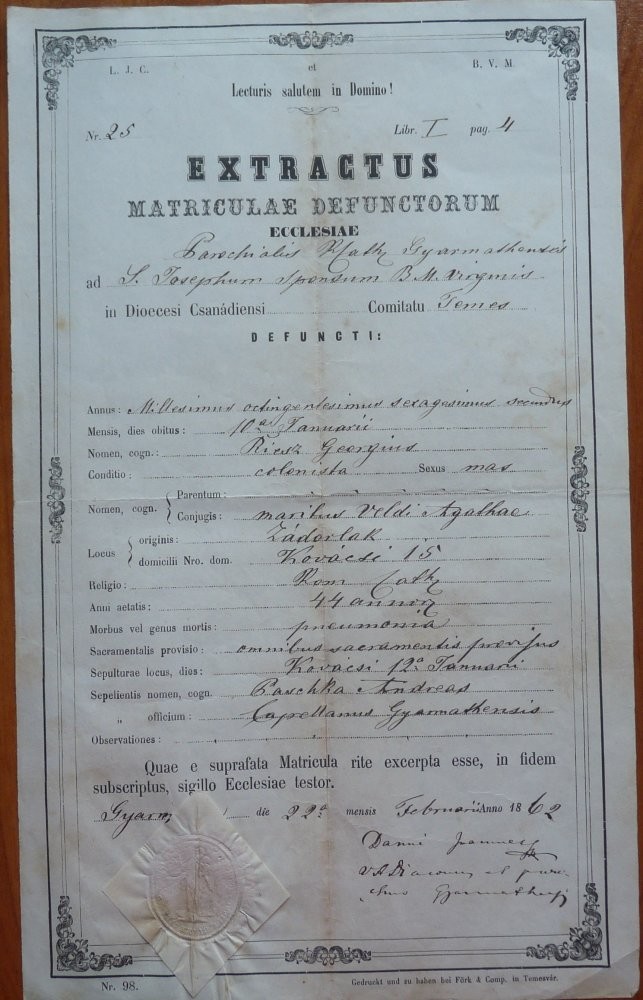 L. J. C. et B. V. M.
Lecturis salutem in Domino!
Nr. 25 Libr. I pag. 4
EXTRACTUS
MATRICULAE DEFUNCTORUM
ECCLESIAE
Parochialis R Cath Gyarmathensis
ad S. Josephum Sponsum B. M. Virginis
in Dioecesi Csanádiensi Comitatu Temes
DEFUNCTI:
Annus: Millesimus octingentesimus sexagesimus secundus
Mensis, dies obitus: 10a Januarii
Nomen, cogn.: Riesz Georgius
Conditio: colonista Sexus mas
Nomen, cogn. { Parentum:
Conjugis: maritus Veldi Agathae
Locus { originis: Zádorlak
domicilii Nro. dom. Kovácsi 15
Religio: Rom Cath
Anni aetatis: 44 annor
Morbus vel genus mortis: pneumonia
Sacramentalis provisio: omnibus sacramentis provisus
Sepulturae locus, dies: Kovácsi 12a Januarii
Sepelientis nomen, cogn. Paschka Andreas
„ officium: Capellanus Gyarmathensis
Observationes:
Quae e suprafata Matricula rite excerpta esse, in fidem
subscriptus, sigillo Ecclesiae testor.
Gyarm die 22a mensis Februarii Anno 1862
Joannes
V A Diaconus et
Nr. 98.
Gedruckt und zu haben bei Förk & Comp. in Temesvár.